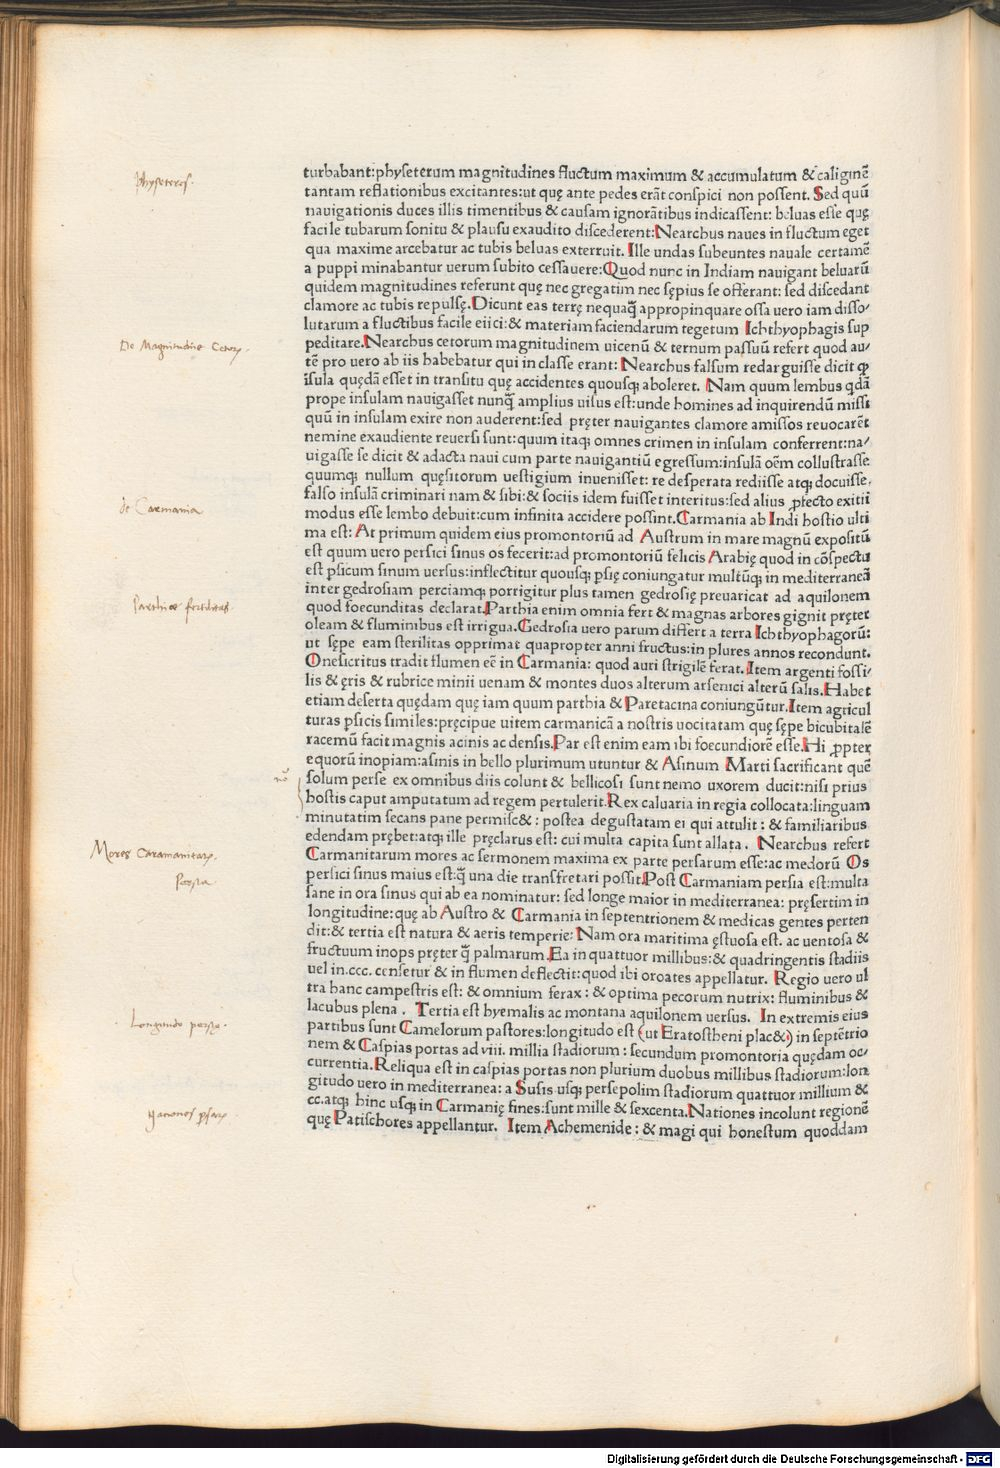 turbabant:physeterum magnitudines fluctum maximum & accumulatum & caliginē
tantam reflationibus excitantes:ut quę ante pedes erāt conspici non possent. Sed quū
nauigationis duces illis timentibus & causam ignorātibus indicassent: beluas esse quę
facile tubarum sonitu & plausu exaudito discederent:Nearchus naues in fluctum eget
qua maxime arcebatur ac tubis beluas exterruit. Ille undas subeuntes nauale certamē
a puppi minabantur uerum subito cessauere:Quod nunc in Indiam nauigant beluarū
quidem magnitudines referunt quę nec gregatim nec sępius se offerant: sed discedant
clamore ac tubis repulsę.Dicunt eas terrę nequaq̃ appropinquare ossa uero iam disso/
lutarum a fluctibus facile eiici:& materiam faciendarum tegetum Ichthyophagis sup
peditare.Nearchus cetorum magnitudinem uicenū & ternum passuū refert quod au/
tē pro uero ab iis habebatur qui in classe erant: Nearchus falsum redarguisse dicit ꝙ
isula quędā esset in transitu quę accidentes quousqꝫ aboleret. Nam quum lembus qdā
prope insulam nauigasset nunq̃ amplius uisus est:unde homines ad inquirendū missi
quū in insulam exire non auderent:sed pręter nauigantes clamore amissos reuocarēt
nemine exaudiente reuersi sunt:quum itaqꝫ omnes crimen in insulam conferrent:na/
uigasse se dicit & adacta naui cum parte nauigantiū egressum:insulā oēm collustrasse
quumqꝫ nullum quęsitorum uestigium inuenisset: re desperata rediisse atqꝫ docuisse.
falso insulā criminari nam & sibi:& sociis idem fuisset interitus:sed alius ꝓfecto exitii
modus esse lembo debuit:cum infinita accidere possint.Carmania ab Indi hostio ulti
ma est: At primum quidem eius promontoriū ad Austrum in mare magnū expositū
est quum uero persici sinus os fecerit:ad promontoriū felicis Arabię quod in cōspectu
est ꝑsicum sinum uersus:inflectitur quousqꝫ ꝑsię coniungatur multūqꝫ in mediterraneā
inter gedrosiam perciamqꝫ porrigitur plus tamen gedrosię preuaricat ad aquilonem
quod foecunditas declarat.Parthia enim omnia fert & magnas arbores gignit pręter
oleam & fluminibus est irrigua.Gedrosia uero parum differt a terra Ichthyophagorū:
ut sępe eam sterilitas opprimat quapropter anni fructus:in plures annos recondunt.
Onesicritus tradit flumen eē in Carmania: quod auri strigilē ferat. Item argenti fossi/
lis & ęris & rubrice minii uenam & montes duos alterum arsenici alterū salis.Habet
etiam deserta quędam quę iam quum parthia & Paretacina coniungūtur.Item agricul
turas ꝑsicis similes:pręcipue uitem carmanicā a nostris uocitatam quę sępe bicubitalē
racemū facit magnis acinis ac densis.Par est enim eam ibi foecundiorē esse.Hi ꝓpter
equorū inopiam:asinis in bello plurimum utuntur & Asinum Marti sacrificant quē
solum perse ex omnibus diis colunt & bellicosi sunt nemo uxorem ducit:nisi prius
hostis caput amputatum ad regem pertulerit.Rex caluaria in regia collocata:linguam
minutatim secans pane permisc&: postea degustatam ei qui attulit: & familiaribus
edendam prębet:atqꝫ ille pręclarus est: cui multa capita sunt allata. Nearchus refert
Carmanitarum mores ac sermonem maxima ex parte persarum esse:ac medorū Os
persici sinus maius est:q̃ una die transfretari possit.Post Carmaniam persia est:multa
sane in ora sinus qui ab ea nominatur: sed longe maior in mediterranea: pręsertim in
longitudine:quę ab Austro & Carmania in septentrionem & medicas gentes perten
dit:& tertia est natura & aeris temperie: Nam ora maritima ęstuosa est. ac uentosa &
fructuum inops pręter q̃ palmarum.Ea in quattuor millibus:& quadringentis stadiis
uel in.ccc. censetur & in flumen deflectit:quod ibi oroates appellatur. Regio uero ul
tra hanc campestris est: & omnium ferax: & optima pecorum nutrix: fluminibus &
lacubus plena. Tertia est hyemalis ac montana aquilonem uersus. In extremis eius
partibus sunt Camelorum pastores:longitudo est (ut Eratostheni plac&) in septētrio
nem & Caspias portas ad viii. millia stadiorum: secundum promontoria quędam oc/
currentia.Reliqua est in caspias portas non plurium duobus millibus stadiorum:lon
gitudo uero in mediterranea: a Susis usqꝫ persepolim stadiorum quattuor millium &
cc.atqꝫ hinc usqꝫ in Carmanię fines:sunt mille & sexcenta.Nationes incolunt regionē
quę Patischores appellantur. Item Achemenide: & magi qui honestum quoddam
physeteres.
De Magnitudine Cetorꝝ.
de Carmania
Parthiae fertilitas
Mores Caramanitarꝝ.
Persia
Longitudo persię.
Digitalisierung gefördert durch die Deutsche Forschungsgemeinschaft - DFG